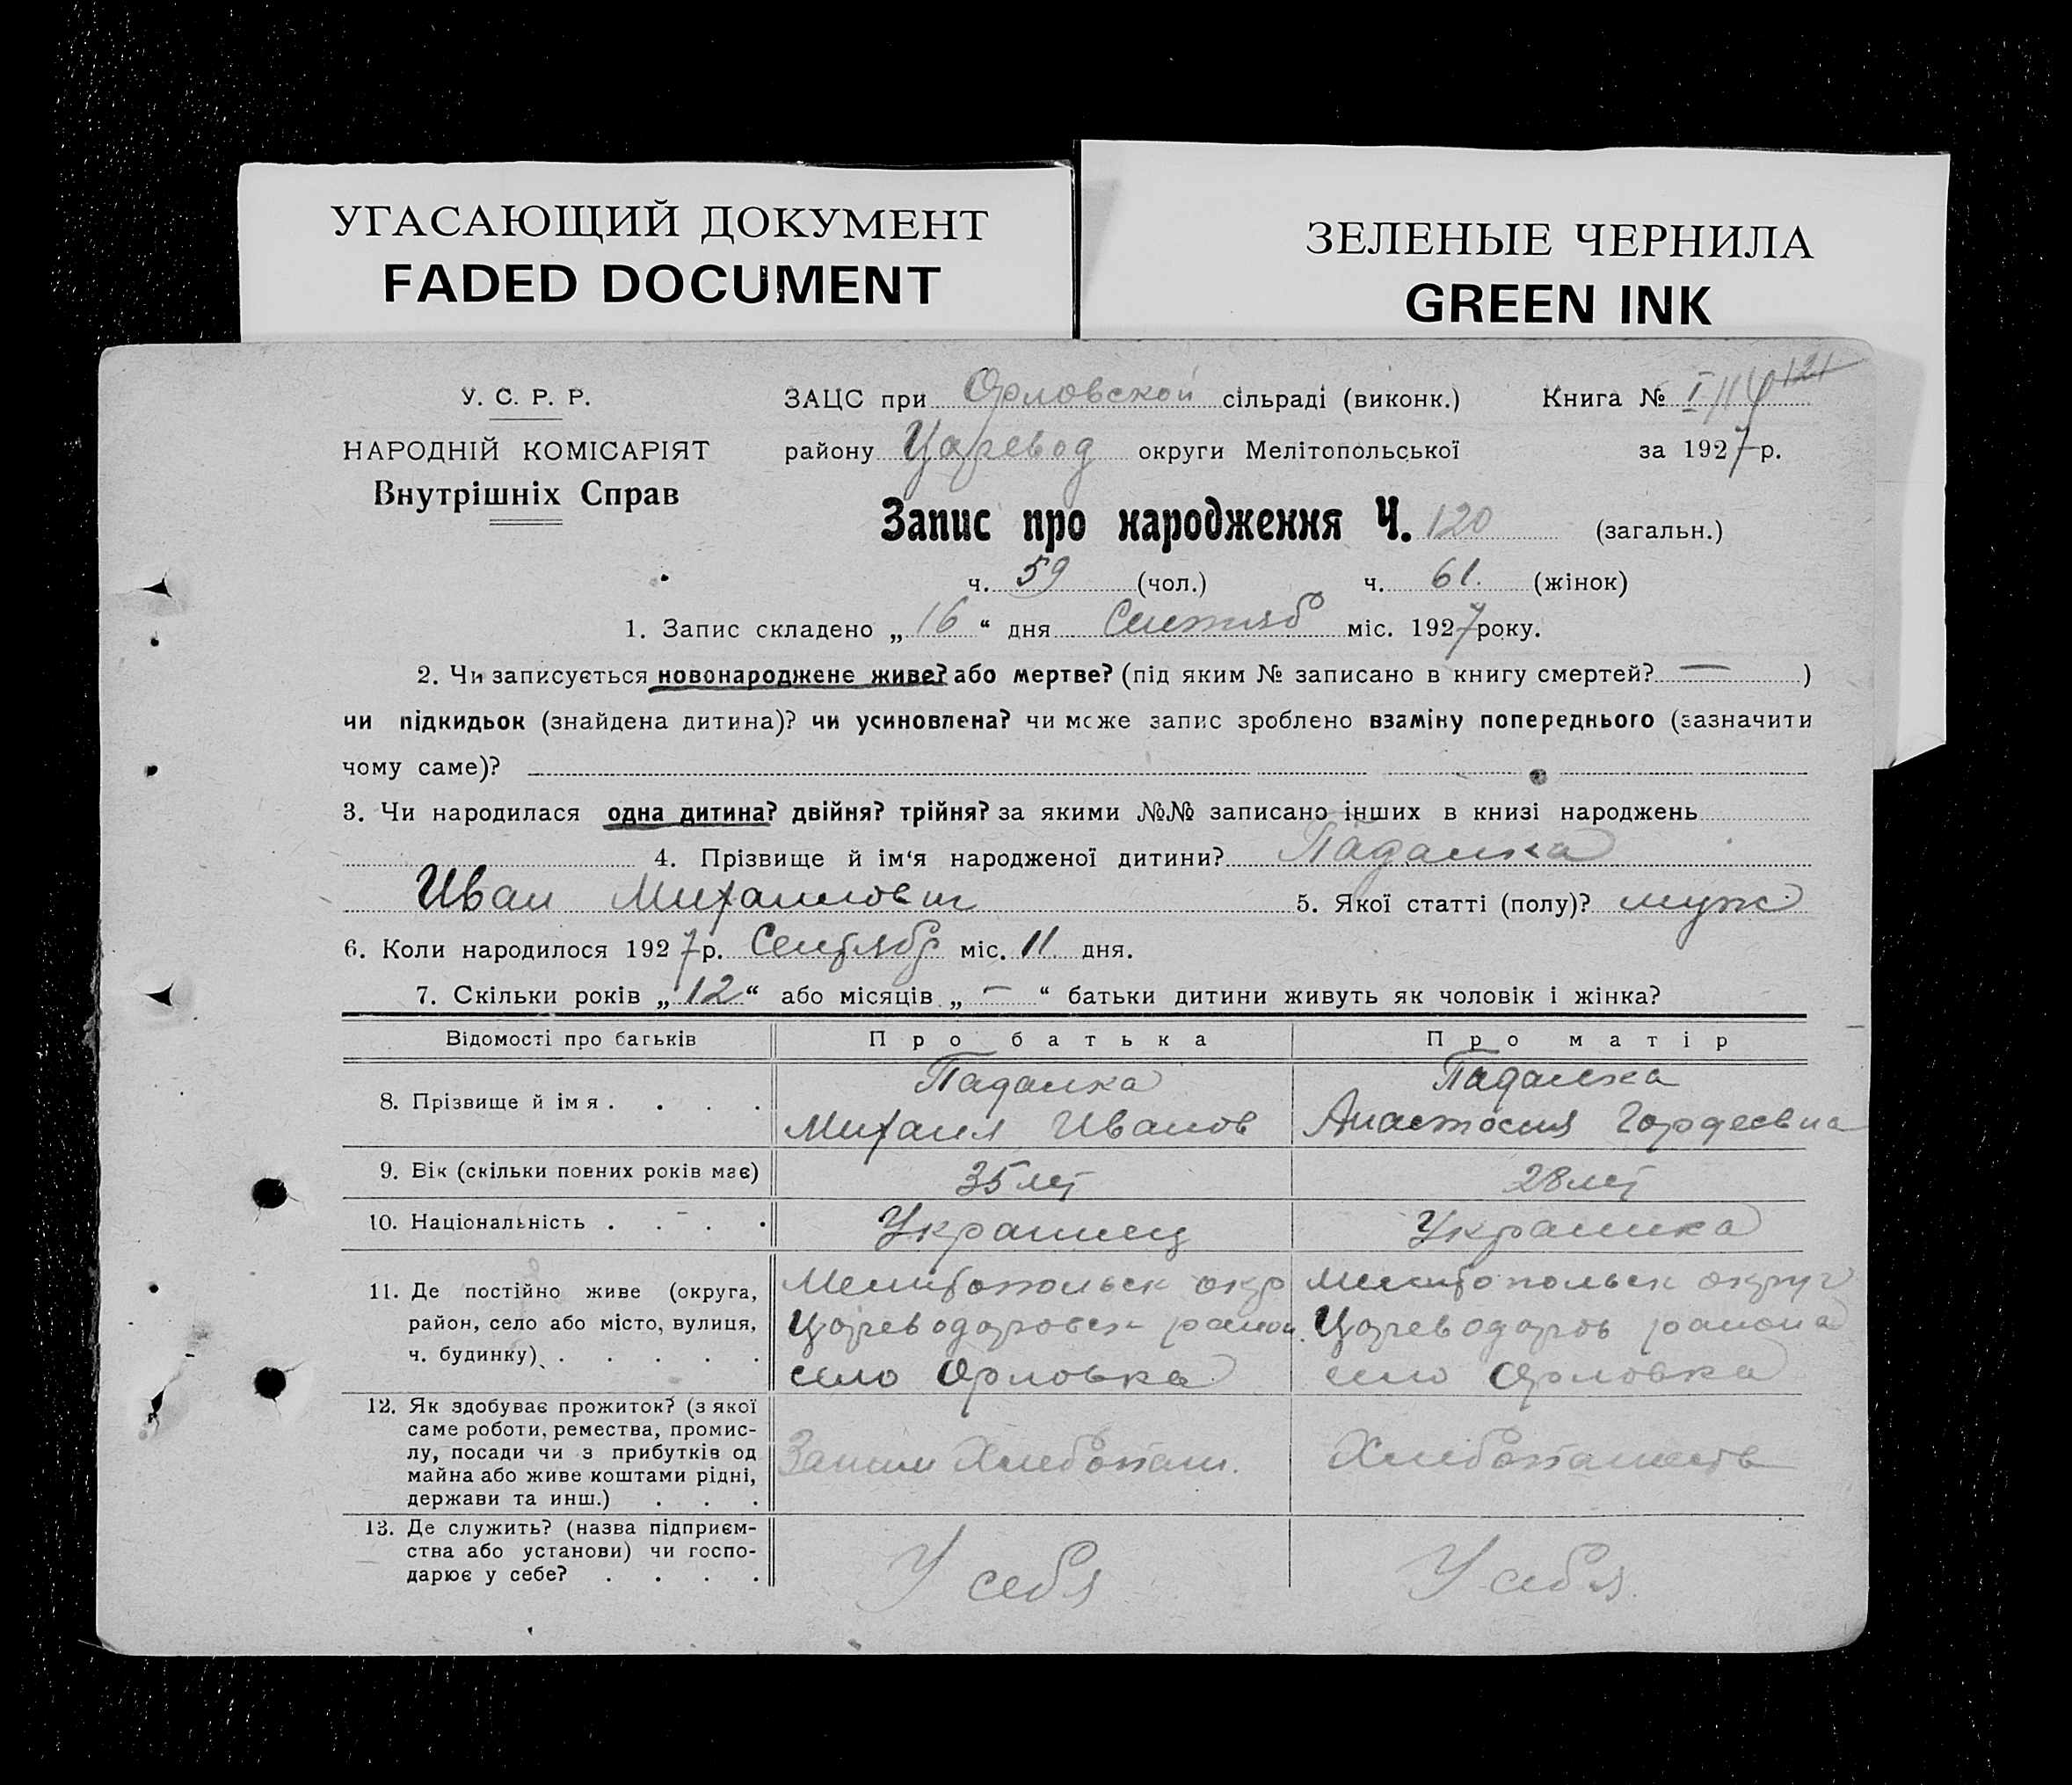 УГАСАЮЩИЙ ДОКУМЕНТ
FADED DOCUMENT
ЗЕЛЕНЫЕ ЧЕРНИЛА
GREEN INK
У. С. Р. Р.
НАРОДНІЙ КОМІСАРІЯТ
Внутрішніх Справ
ЗАЦС при Орловской сільраді (виконк.) Книга № I
121
району Царевод округи Мелітопольської за 1927 р.
Запис про народження Ч. 120 (загальн.)
ч. 59 (чол.) ч. 61. (жінок)
1. Запис складено „ 16 “ дня Сентяб міс. 1927 року.
2. Чи записується новонароджене живе? або мертве? (під яким № записано в книгу смертей? — )
чи підкидьок (знайдена дитина)? чи усиновлена? чи може запис зроблено взаміну попереднього (зазначити
чому саме)?
3. Чи народилася одна дитина? двійня? трійня? за якими №№ записано інших в книзі народжень
4. Прізвище й ім‘я народженої дитини? Падалка
Иван Михайлович 5. Якої статті (полу)? муж
6. Коли народилося 1927 р. Сентябр міс. 11. дня.
7. Скільки років „ 12 “ або місяців „ — “ батьки дитини живуть як чоловік і жінка?
Відомості про батьків Про батька Про матір
8. Прізвище й імя . . . .
Падалка
Михаил Иванов
Падалка
Анастосия Гордеевна
9. Вік (скільки повних років має) 35 лет 28 лет
10. Національність . . . . Украинец Украинка
11. Де постійно живе (округа,
район, село або місто, вулиця,
ч. будинку) . . . . .
Мелитопольск окр
Цареводаровск район.
село Орловка
Мелитопольск округ
Цареводаров района
село Орловка
12. Як здобуває прожиток? (з якої
саме роботи, ремества, промис-
лу, посади чи з прибутків од
майна або живе коштами рідні,
держави та инш.) . . .
Хлебопаш.
Хлебопашеств
13. Де служить? (назва підприєм-
ства або установи) чи госпо-
дарює у себе? . . . .
У себя
У себя.